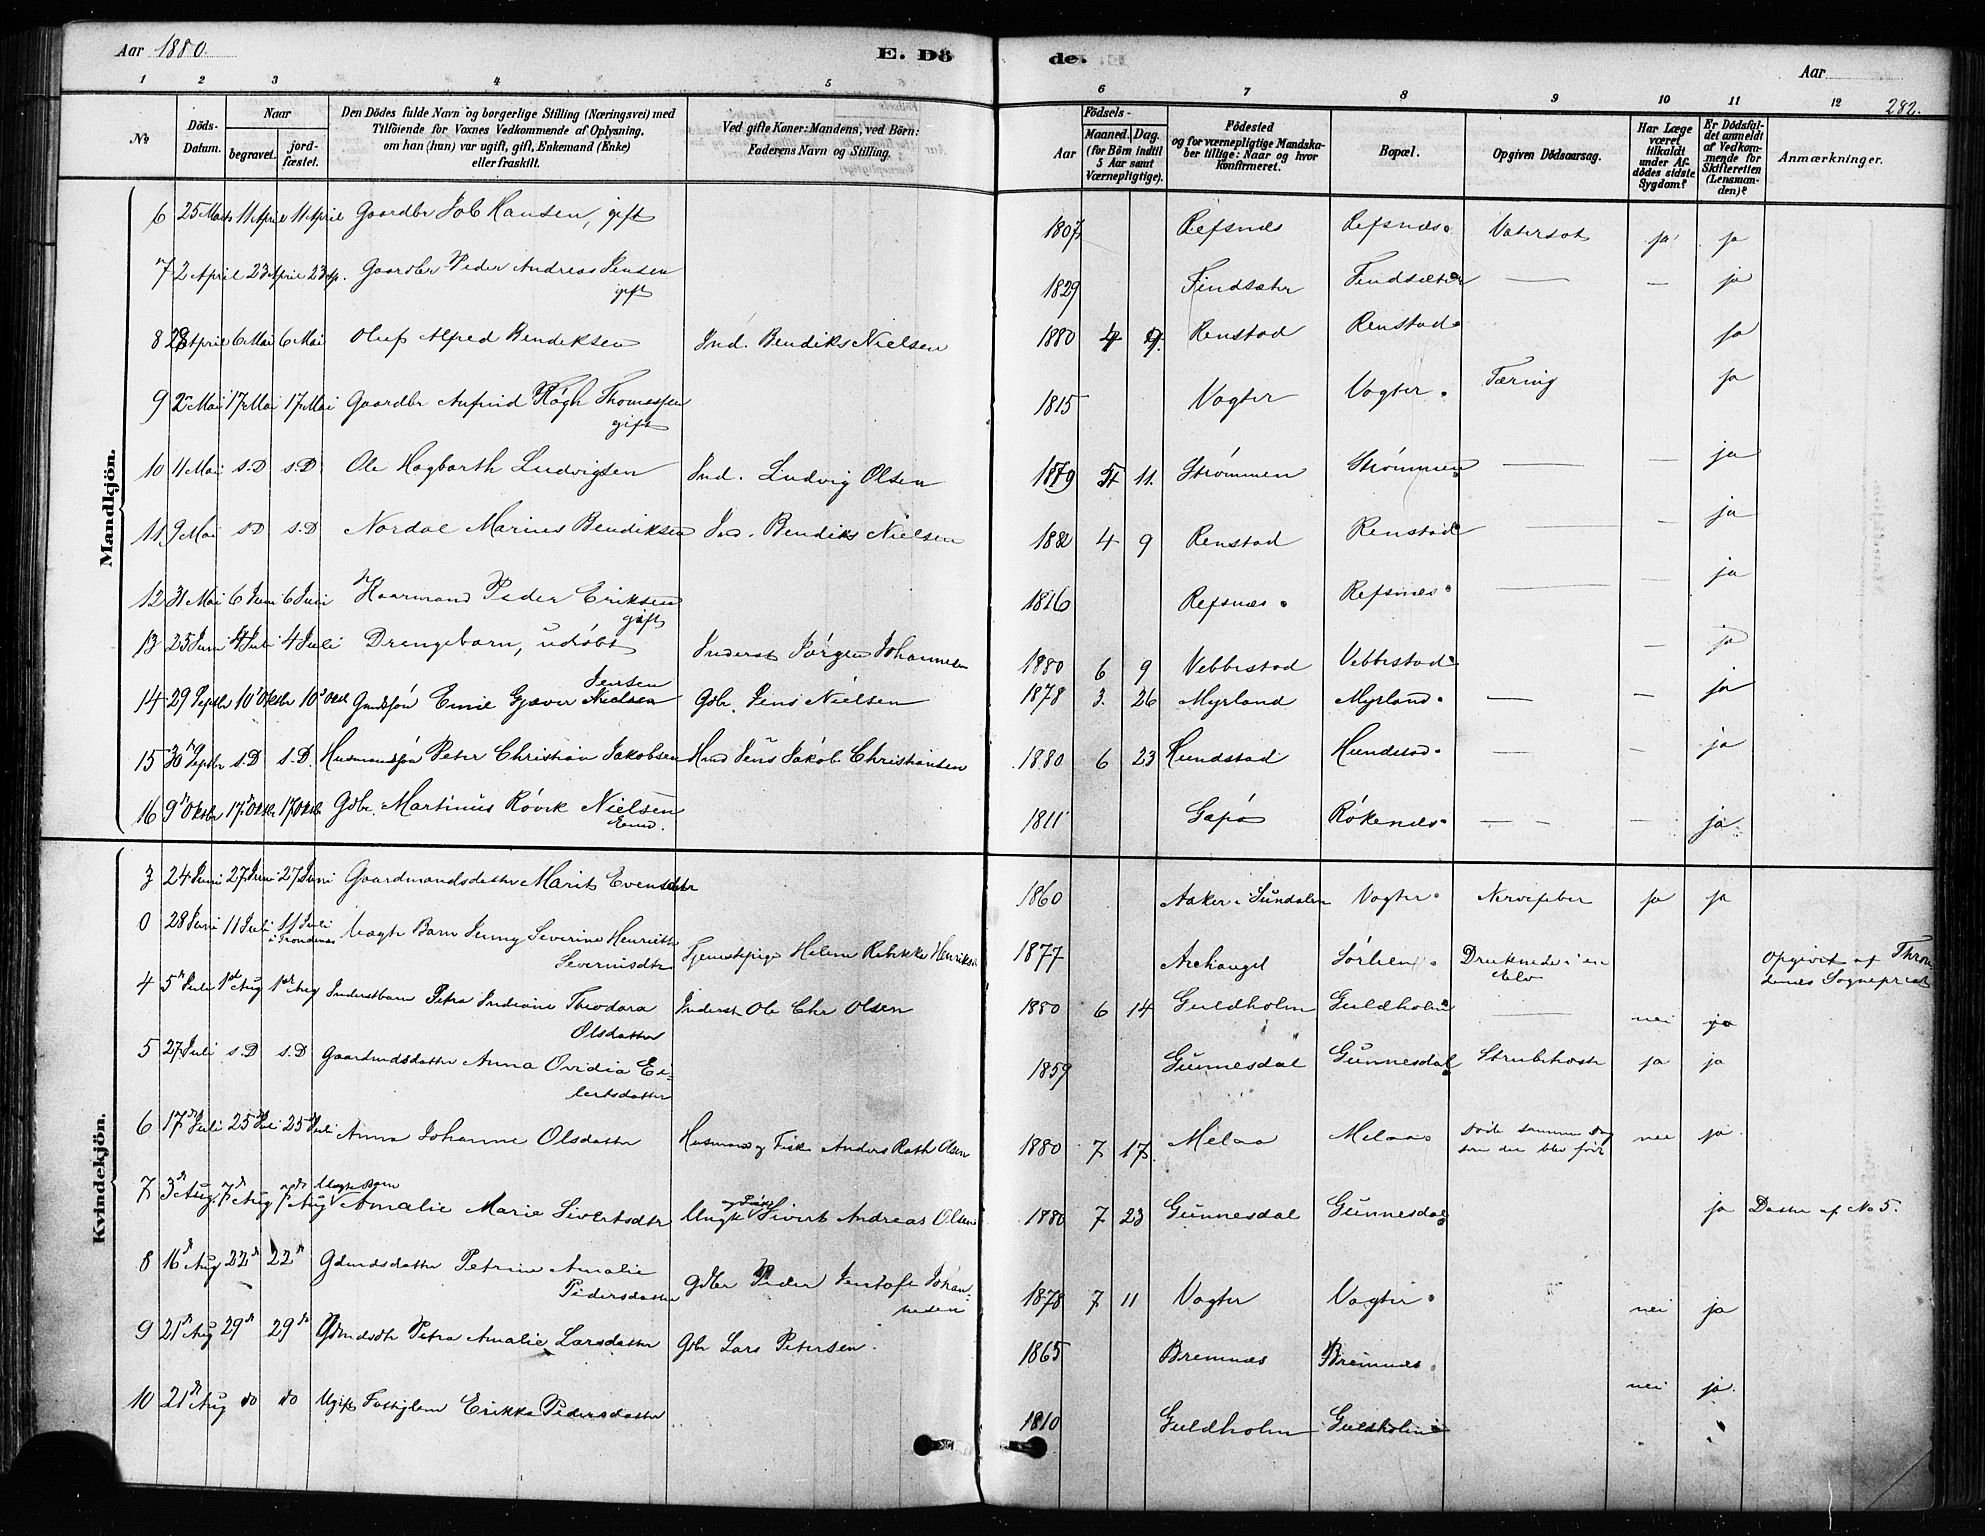 Aar 1880. E. Dö de. Aar 282.
1 2 3 4 5 6 7 8 9 10 11 12
No Döds-Datum. Naar begravet. jordfæstet. Den Dödes fulde Navn og borgerlige Stilling (Næringsvei) med Tilföiende for Voxnes Vedkommende af Oplysning, om han (hun) var ugift, gift, Enkemand (Enke) eller fraskilt. Ved gifte Koner: Mandens, ved Börn: Faderens Navn og Stilling. Födsels- Aar Maaned. Dag. (for Börn indtil 5 Aar samt Værnepligtige). Födested og for værnepligtige Mandskaber tillige: Naar og hvor Konfirmeret. Bopæl. Opgiven Dödsaarsag. Har Læge været tilkaldt under Afdödes sidste Sygdom? Er Dödsfaldet anmeldt af Vedkommende for Skifteretten (Lensmanden)? Anmærkninger.
Mandkjön.
6 25 Marts 11 April 11 April Gaardbr Job Hansen, gift 1807 Refsnæs Refsnæs. Vatersot ja ja
7 2 April 23 April 23 Ap. Gaardbr Peder Andreas Jensen gift 1829 Findsæter Findsæter — — ja
8 28 April 6 Mai 6 Mai Oluf Alfred Bendiksen Ind. Bendiks Nielsen 1880 4 9. Renstad Renstad. ja
9 2 Mai 17 Mai 17 Mai Gaardbr Thomassen gift 1815 Vogter Vogter. Tæring ja
10 11 Mai s.D s.D. Ole Hagbarth Ludvigsen Ind. Ludvig Olsen 1879 11. Strømmen Strømmen — — ja
11 9 Mai s.D s.D Nordal Marius Bendiksen Ind. Bendiks Nielsen 1880 4 9 Renstad Renstad — — ja
12 31 Mai 6 Juni 6 Juni Kaarmand Peder Eriksen gift 1816 Refsnæs. Refsnæs. — — ja
13 25 Juni 4 Juli 4 Juli Drengebarn, udøbt Inderst Jørgen Johannesen 1880 6 9 Vebbestad Vebbestad — ja
14 29 Septbr 10 Oktbr 10 Oktb Gmdssøn Emil Gjæver Jensen Nielsen Gdbr. Jens Nielsen 1878 3. 26 Myrland Myrland. — — ja
15 30 Septbr s.D s.D. Husmandssøn Peter Christian Jakobsen Hmd Jens Jakob Christiansen 1880 6 23 Hundstad Hundstad. — — ja
16 9 Oktbr 17 Oktbr 17 Oktbr Gdbr. Martinus Røvik Nielsen Enm. 1811 Gapø Røkenæs. — — — ja.
Kvindekjön.
3 24 Juni 27 Juni 27 Juni Gaardmandsdatter Marit Evensdatter 1860 Aaker i Sundalen Vogter. Nervefeber ja ja
0 28 Juni 11 Juli 11 Juli i Trondenæs Uægte Barn Jenny Severine Henriette Severinsdtr Tjenestepige Helene Rebekka Henriksen 1877 Archangel Sørlien. Druknede i en Elv Opgivet af Throndenæs Sognepræst
4 5 Juli 1st Aug 1st Aug Inderstbarn Petra Indiane Theodora Olsdatter Inderst Ole Chr Olsen 1880 6 14 Guldholm Guldholm — nei ja
5 27 Juli s.D s.D Gaardmdsdatter Anna Ovidia Eilertsdatter 1859 Gunnesdal Gunnesdal Strubehoste ja ja
6 17 Juli 25 Juli 25 Juli Anna Johanne Olsdatter Husmand og Fisker Anders Rath Olsen 1880 7 17. Melaa Melaa. Døde samme Dag som den blev født nei ja.
7 3 Aug. 7 Aug 7 Aug Uægte Barn Amalie Marie Sivertsdtr Ungk Sivert Andreas Olsen 1880 7 23 Gunnesdal Gunnesdal ja Datter af No 5.
8 16 Aug 22 22 Gdmdsdatter Petrine Amalie Pedersdatter Gdbr Peder Jentoft Johannesen 1878 7 11 Vogter Vogter. nei ja
9 21 Aug 29 29 Gdmdsdtr Petra Amalie Larsdatter Gdbr Lars Petersen. 1865 Bremnæs Bremnæs. nei ja.
10 21 Aug do do Ugift Fattiglem Erikka Pedersdatter 1810 Guldholm Guldholm